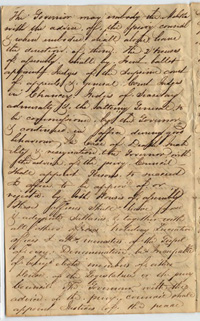 The Governor may embody the Militia
with the advice of the privy council
& when embodied shall alone have
the direction of thereof the 2 Houses
of assembly shall by joint ballot
appoint Judges of the Supreme court
of appeals & General Court Judges
in Chancery, Judges of
admiralty, & the attorney General to
be commissioned by the Governor
& continue in office during good
behaviour. In case of Death
resignation the Governor with
the advice of the privy Council
shall appoint Persons to succeed
in office to be approved of or
by both Houses of assembly
these officers shall have fixed
& adequate Salaries, & together with
all others
offices & all ministers of the Gospel
of every Denomination be incapable
of being elected members of either
House of the Legislature or the privy
Council. The Governor with the
advice of the privy council shall
appoint Justices of the peace